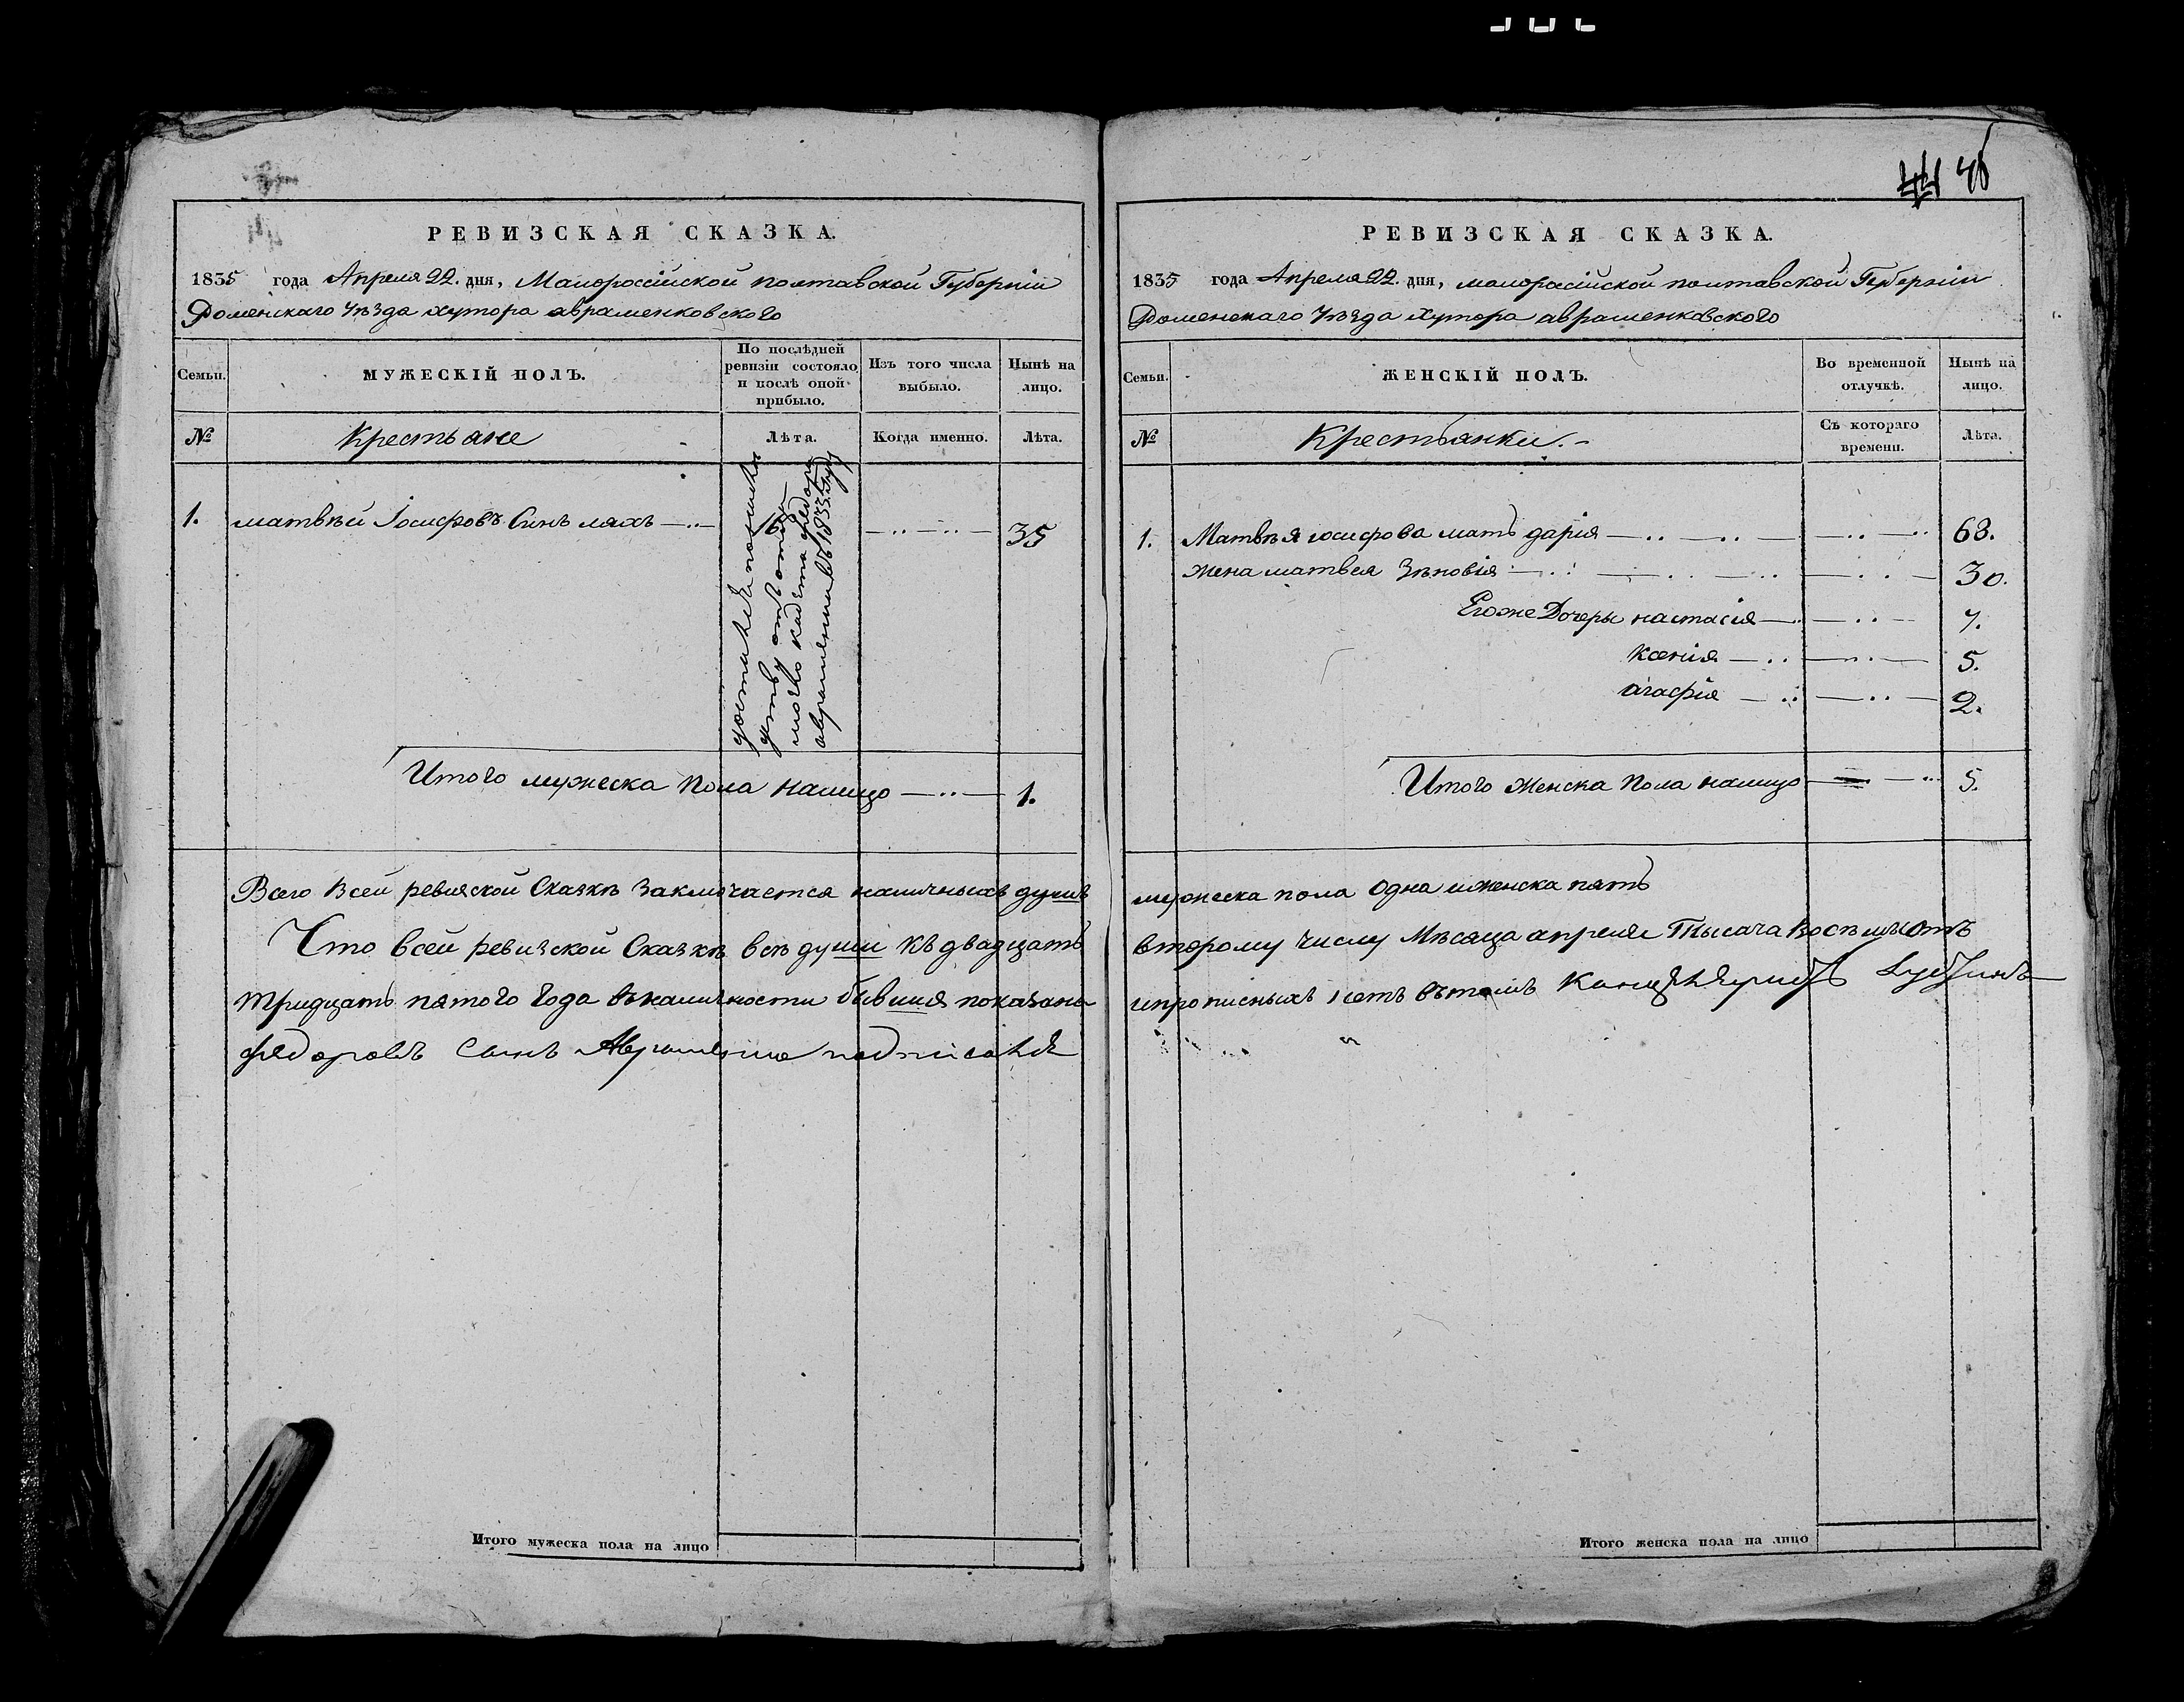 44 45
РЕВИЗСКАЯ СКАЗКА.
1835 года Апреля 22. дня, Малоросийской полтавской Губерніи
Роменскаго Уѣзда хутора авраменковского
Семьи.
МУЖЕСКІЙ ПОЛЪ.
По послѣдней
ревизіи состояло
и послѣ оной
прибыло.
Изъ того числа
выбыло.
Нынѣ на
лицо.
№
Крестьяне
Лѣта.
Когда именно.
Лѣта.
1. матвѣй Іосифовъ Синъ ляхъ 16 35
достался
отъ
кадета федора
авраменки въ 1833. году
Итого мужеска пола налицо 1.
Всего Всей ревизской Сказкѣ Заключается наличныхъ душъ
Что всей ревизской Сказкѣ всѣ души къ двадцать
тридцать пятого года въналичности бывшия показаны
Федоровъ Сынъ Авраменко подписался
РЕВИЗСКАЯ СКАЗКА.
1835 года Апреля 22. дня, малоросийской полтавской Губерніи
Роменскаго Уѣзда хутора авраменковского
Семьи.
ЖЕНСКІЙ ПОЛЪ.
Во временной
отлучкѣ.
Нынѣ на
лицо.
№
Крестьянки.
Съ котораго
времени.
Лѣта.
1. Матвѣя иосифова мать дарія 68.
жена матвея Зѣновія 30.
Егоже Дочеры настасія 7.
Ксенія 5.
агафія 2.
Итого женска пола налицо 5.
мужеска пола одна иженска пять
второму числу Мѣсяца апреля Тысяча Восѣмъсотъ
ипрописныхъ нетъ вътомъ
Итого мужеска пола на лицо
Итого женска пола на лицо